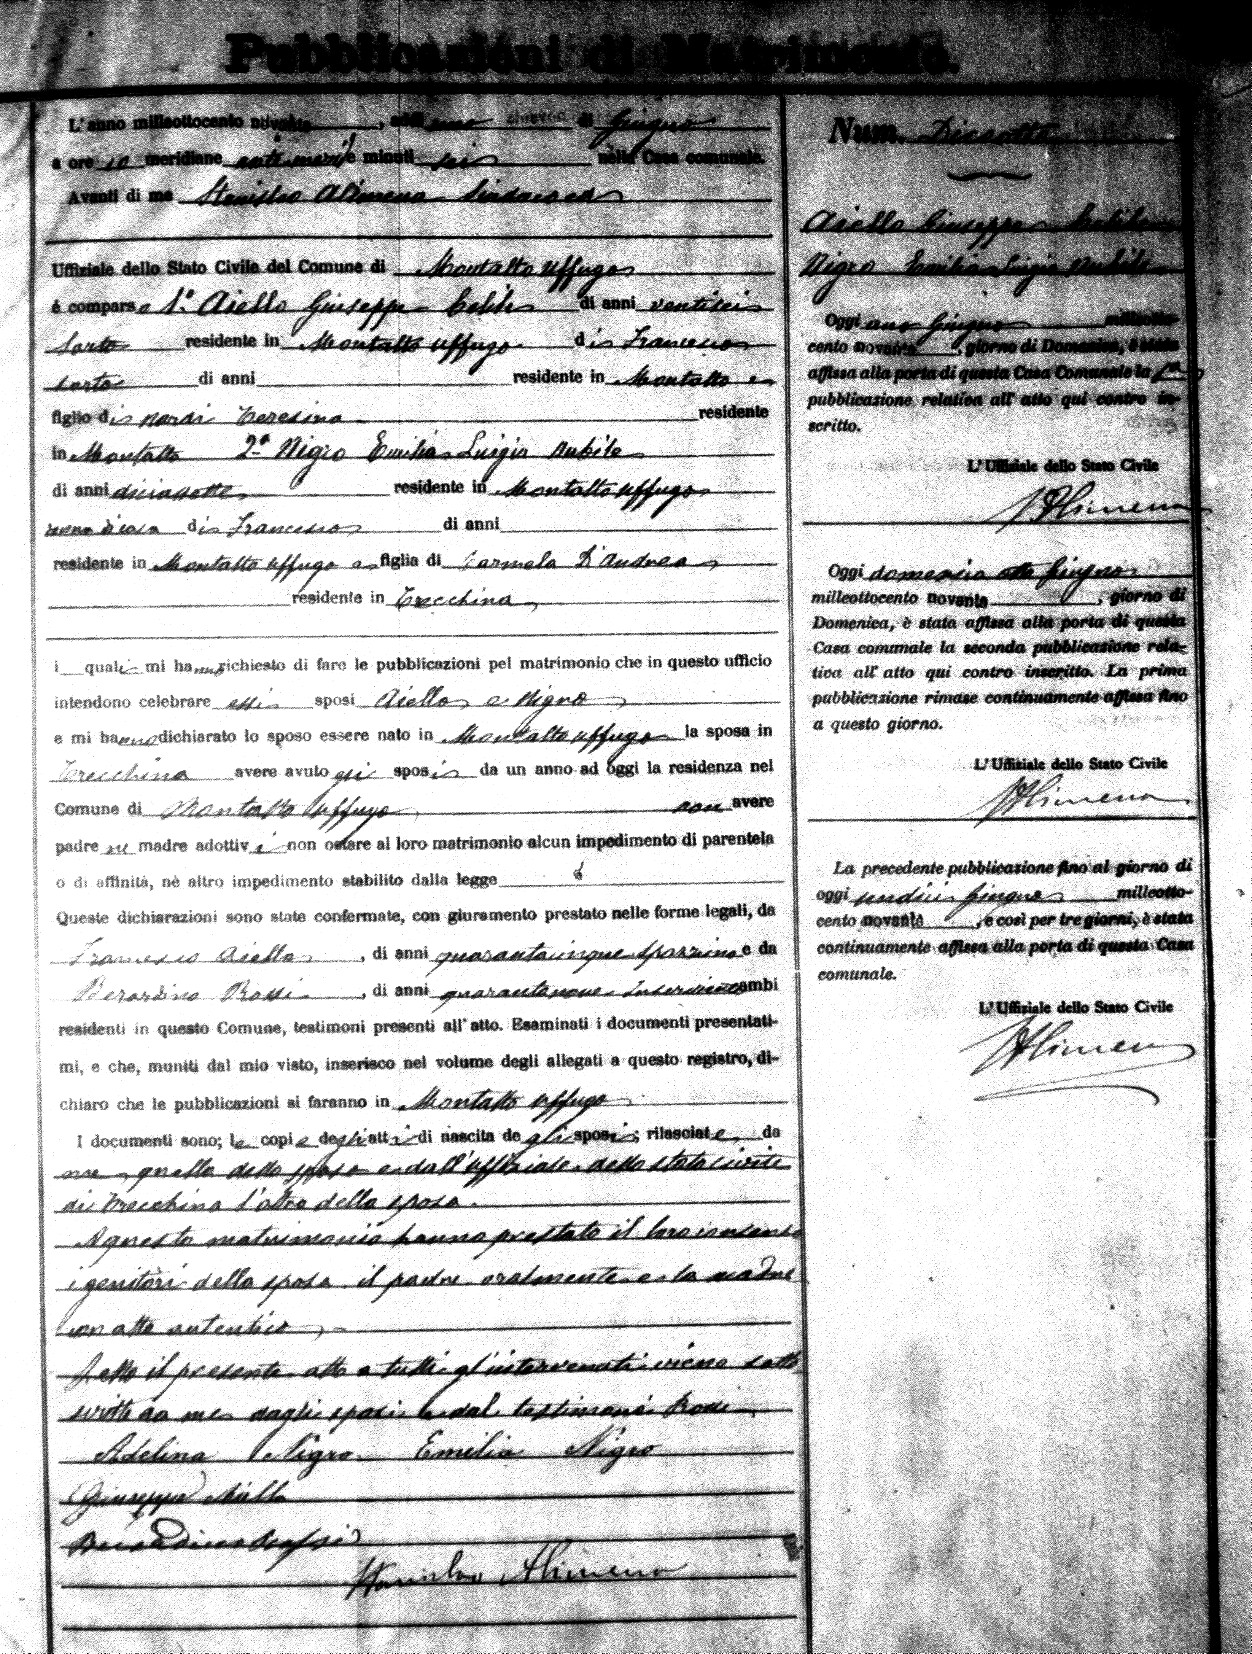 Pubblicazioni di Matrimonio.
L'anno milleottocento novanta, addì uno di Giugno
a ore 10 meridiane anti e minuti sei nella Casa comunale.
Avanti di me Stanislao Alimena Sindaco ed
Uffiziale dello Stato Civile del Comune di Montalto Uffugo
è comparso 1.° Aiello Giuseppe Celibe di anni ventisei
Sarto residente in Montalto Uffugo di Francesco
sarto di anni residente in Montalto e
figlio di Nardi Teresina residente
in Montalto 2.ª Nigro Emilia Luigia Nubile
di anni diciassette residente in Montalto Uffugo
donna di casa di Francesco di anni
residente in Montalto Uffugo e figlia di Carmela D'Andrea
residente in Trecchina
i quali mi hanno richiesto di fare le pubblicazioni pel matrimonio che in questo ufficio
intendono celebrare essi sposi Aiello e Nigro
e mi hanno dichiarato lo sposo essere nato in Montalto Uffugo la sposa in
Trecchina avere avuto gli sposi da un anno ad oggi la residenza nel
Comune di Montalto Uffugo non avere
padre nè madre adottivi non ostare al loro matrimonio alcun impedimento di parentela
o di affinità, nè altro impedimento stabilito dalla legge
Queste dichiarazioni sono state confermate, con giuramento prestato nelle forme legali, da
Francesco Aiello, di anni quarantacinque spazzino e da
Berardino Rossi, di anni quarantanove Inserviente ambi
residenti in questo Comune, testimoni presenti all'atto. Esaminati i documenti presentati-
mi, e che, muniti dal mio visto, inserisco nel volume degli allegati a questo registro, di-
chiaro che le pubblicazioni si faranno in Montalto Uffugo
I documenti sono; le copie degli atti di nascita degli sposi; rilasciate da
me quella dello sposo e dall'uffiziale dello stato civile
di Trecchina l'altra della sposa.
A questo matrimonio hanno prestato il loro consenso
i genitori della sposa il padre oralmente e la madre
con atto autentico
Letto il presente atto a tutti gl'intervenuti viene sotto
scritto da me dagli sposi e dal testimone Rossi
Adelina Nigro Emilia Nigro
Giuseppe Aiello
Berardino Rossi
Stanislao Alimena
Num. Diciotto
Aiello Giuseppe Celibe
Nigro Emilia Luigia Nubile
Oggi uno Giugno milleotto-
cento novanta, giorno di Domenica, è stata
affissa alla porta di questa Casa Comunale la 1ª
pubblicazione relativa all'atto qui contro in-
scritto.
L'Uffiziale dello Stato Civile
SAlimena
Oggi domenica otto Giugno
milleottocento novanta, giorno di
Domenica, è stata affissa alla porta di questa
Casa comunale la seconda pubblicazione rela-
tiva all'atto qui contro inscritto. La prima
pubblicazione rimase continuamente affissa fino
a questo giorno.
L'Uffiziale dello Stato Civile
SAlimena
La precedente pubblicazione fino al giorno di
oggi undici Giugno milleotto-
cento novanta, e così per tre giorni, è stata
continuamente affissa alla porta di questa Casa
comunale.
L'Uffiziale dello Stato Civile
SAlimena